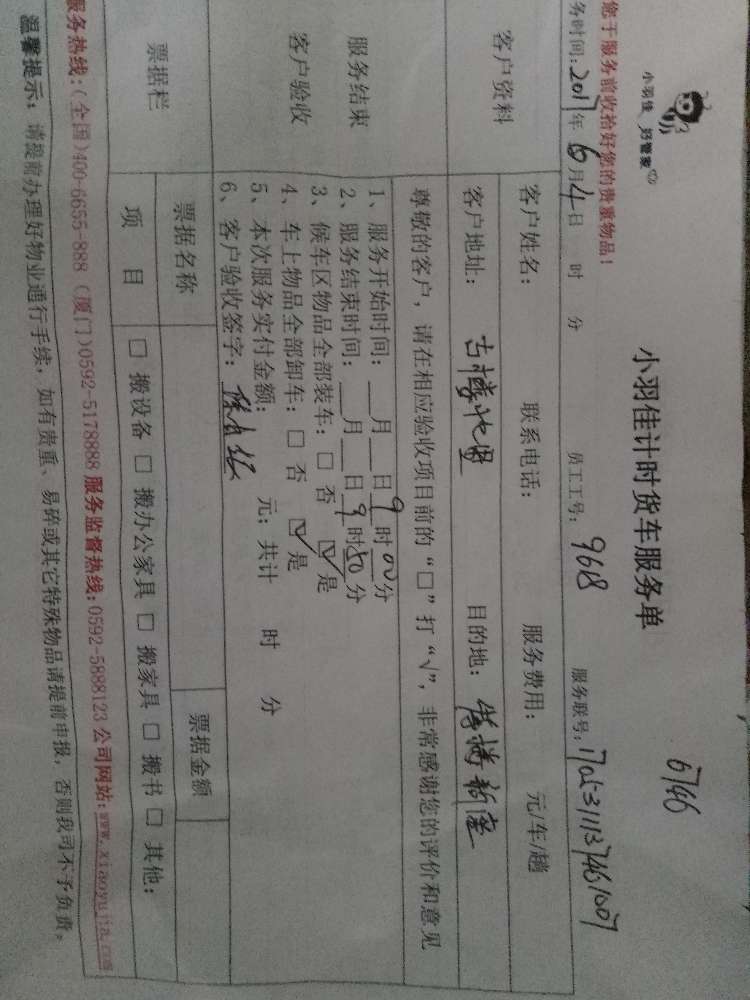 6746
小羽佳 好管家
小羽佳计时货车服务单
您于服务前收拾好您的贵重物品!
务时间:2017年6月4日 时 分 员工工号:9668 服务联号:1705311137461007
客户资料
客户姓名: 联系电话: 服务费用: 元/车/趟
客户地址: 目的地:
尊敬的客户,请在相应验收项目前的“□”打“√”,非常感谢您的评价和意见
服务结束
客户验收
1、服务开始时间:__月__日9时00分
2、服务结束时间:__月__日9时50分
3、候车区物品全部装车:□ 否 ☑ 是
4、车上物品全部卸车:□ 否 ☑ 是
5、本次服务实付金额: 元;共计 时 分
6、客户验收签字:
票据栏
票据名称 票据金额
项 目 □ 搬设备 □ 搬办公家具 □ 搬家具 □ 搬书 □ 其他:
服务热线:(全国)400-6655-888 (厦门)0592-5178888 服务监督热线:0592-5888123 公司网站:www.xiaoyujia.com
温馨提示:请提前办理好物业通行手续,如有贵重、易碎或其它特殊物品请提前申报,否则我司不予负责。